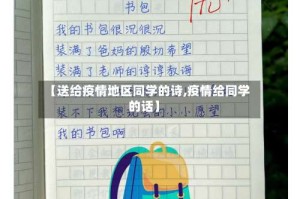 书包
我的书包很沉很沉
装满了爸妈的殷切希望
装满了老师的谆谆教诲
【送给疫情地区同学的诗,疫情给同学的话】
装不下我想玩的小小愿望
我的书包啊